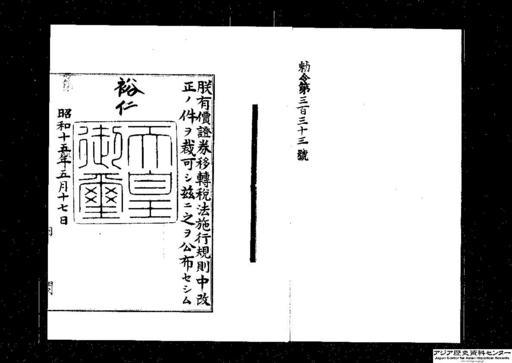 勅令第三百三十三號
朕有價證券移轉稅法施行規則中改
正ノ件ヲ裁可シ玆ニ之ヲ公布セシム
裕仁
天皇
御璽
昭和十五年五月十七日
アジア歴史資料センター
Japan Center for Asian Historical Records